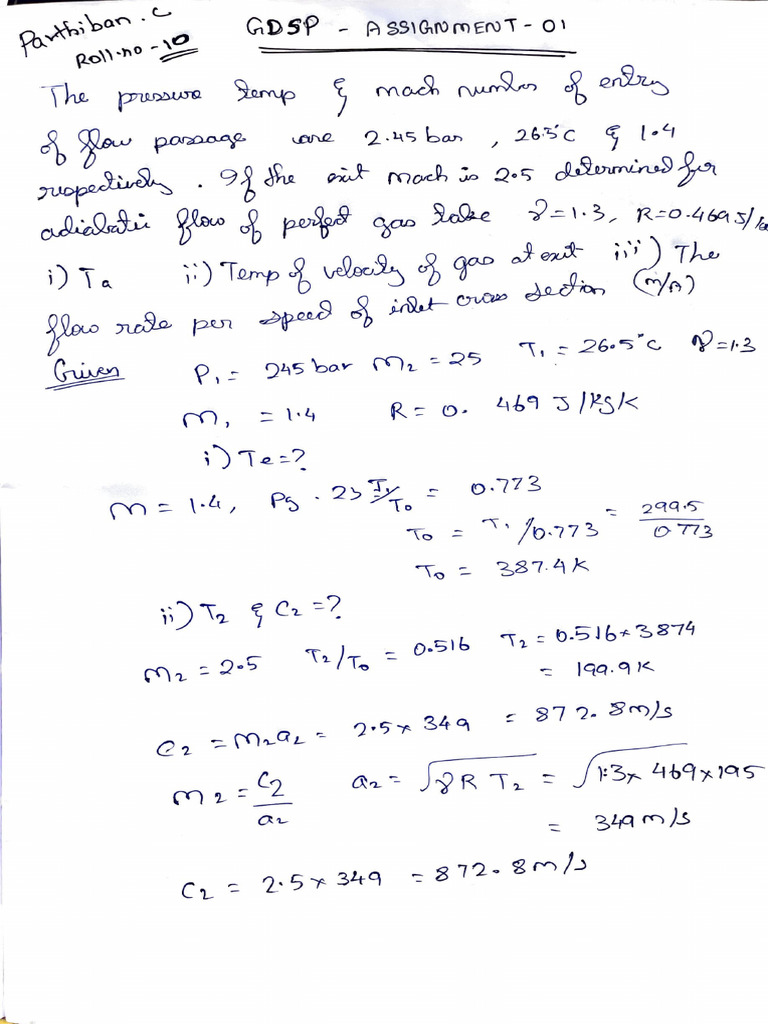 Parthiban.C
Roll.no-10
GDSP - ASSIGNMENT-01
The pressure temp & mach number of entry
of flow passage are 2.45 bar, 26.5°C & 1.4
respectively. If the exit mach is 2.5 determined for
adiabatic flow of perfect gas take γ=1.3, R=0.469 J/
i) Ta ii) Temp of velocity of gas at exit iii) The
flow rate per speed of inlet cross section (m/A)
Given P1 = 245 bar M2 = 25 T1 = 26.5°C γ=1.3
M1 = 1.4 R = 0. 469 J/kgk
i) Te=?
M = 1.4, Pg. 23 T1/T0 = 0.773
T0 = T1/0.773 = 299.5/0.773
T0 = 387.4K
ii) T2 & C2 = ?
M2 = 2.5 T2/T0 = 0.516 T2 = 0.516×3874
= 199.9K
C2 = M2a2 = 2.5×349 = 872.8m/s
M2 = C2/a2 a2 = √γRT2 = √1.3×469×195
= 349m/s
C2 = 2.5×349 = 872.8m/s